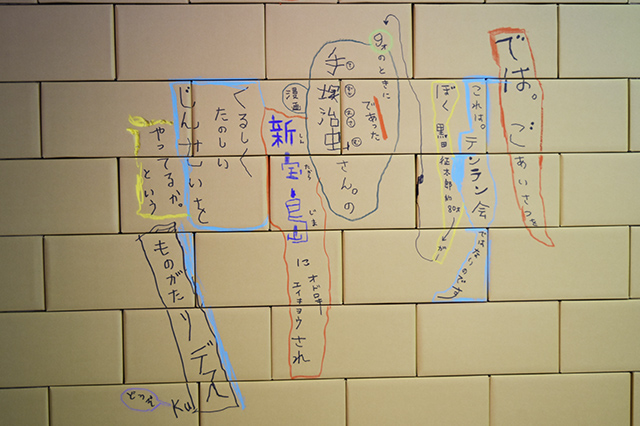 では。ごあいさつを
これは。テンラン会
ではないのです
ぼく 黒田征太郎 約80才が
9才のときに
であった
手塚治虫さん。の
漫画
新宝島に
たから
じま
オドロキ
エイキョウされ
くるしく
たのしい
じんせいを
やってるか。
という
ものがたりデス
どうぞ